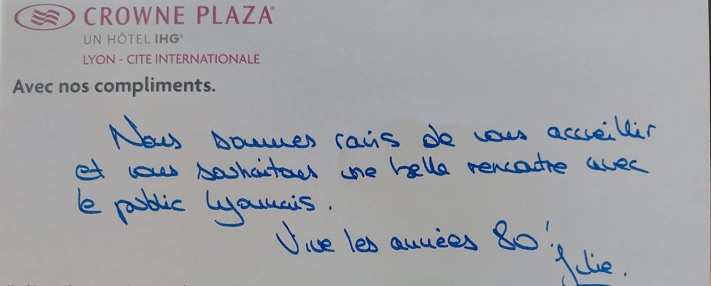 CROWNE PLAZA
UN HÔTEL IHG®
LYON - CITE INTERNATIONALE
Avec nos compliments.
Nous sommes ravis de vous accueillir
et vous souhaitons une belle rencontre avec
le public lyonnais.
Vive les années 80!
Julie.